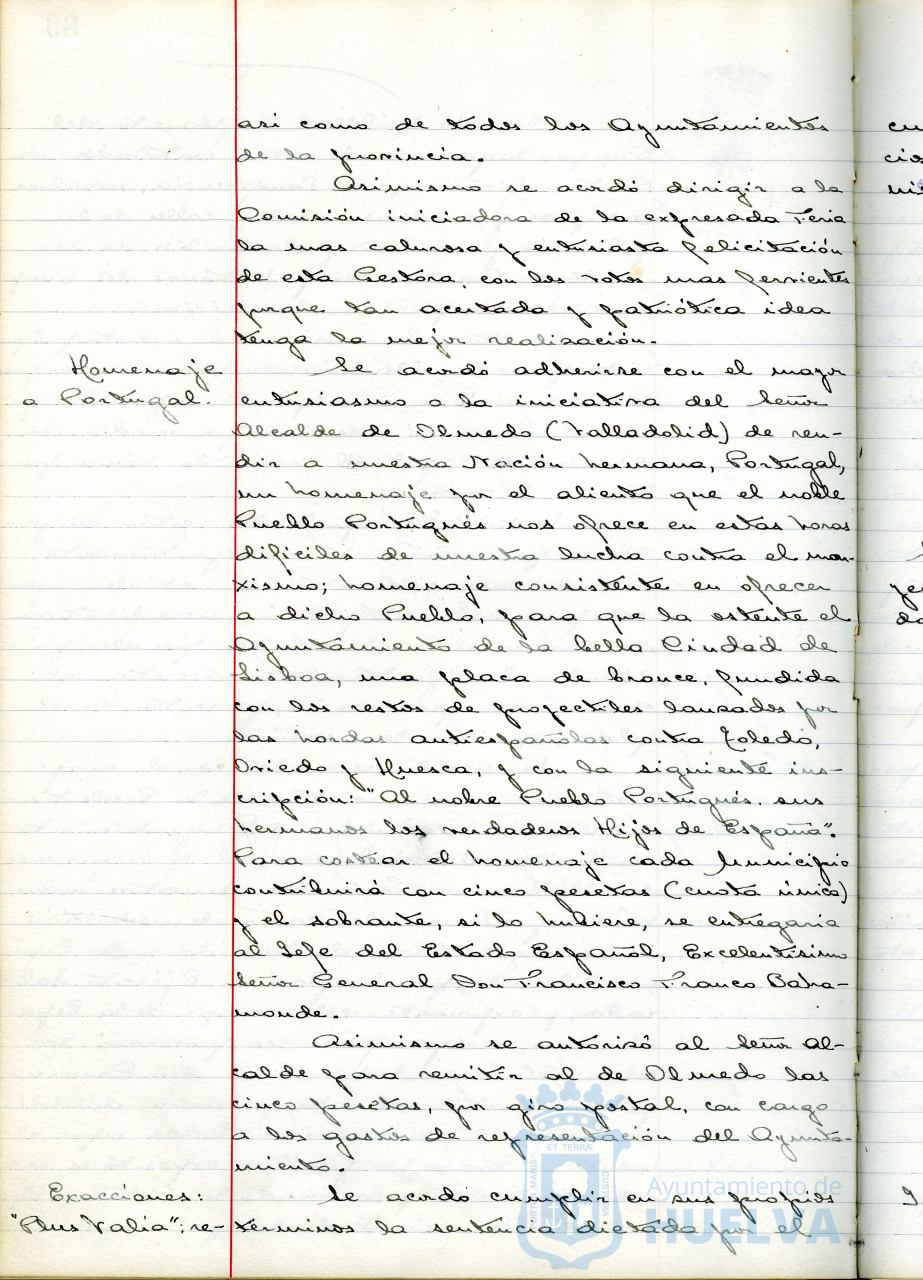 asi como de todos los Ayuntamientos
de la provincia.
Asimismo se acordó dirigir a la
Comisión iniciadora de la expresada Feria
la mas calurosa y entusiasta felicitación
de esta Gestora, con los votos mas fervientes
porque tan acertada y patriótica idea
tenga la mejor realización.
Homenaje
a Portugal.
Se acordó adherirse con el mayor
entusiasmo a la iniciativa del Señor
Alcalde de Olmedo (Valladolid) de ren-
dir a nuestra Nación hermana, Portugal,
un homenaje por el aliento que el noble
Pueblo Portugués nos ofrece en estas horas
dificiles de nuestra lucha contra el mar-
xismo; homenaje consistente en ofrecer
a dicho Pueblo, para que la ostente el
Ayuntamiento de la bella Ciudad de
Lisboa, una placa de bronce, fundida
con los restos de proyectiles lanzados por
las hordas antiespañolas contra Toledo,
Oviedo y Huesca, y con la siguiente ins-
cripción: "Al nobre Pueblo Portugués. sus
hermanos los verdaderos Hijos de España".
Para costear el homenaje cada Municipio
contribuirá con cinco pesetas (cuota única)
y el sobrante, si lo hubiere, se entregaria
al Jefe del Estado Español, Excelentisimo
Señor General Don Francisco Franco Baha-
monde.
Asimismo se autorizó al Señor Al-
calde para remitir al de Olmedo las
cinco pesetas, por giro postal, con cargo
a los gastos de representación del Ayunta-
miento.
Exacciones:
"Plus Valia": re-
Se acordó cumplir en sus propios
terminos la sentencia dictada por el
Ayuntamiento de
HUELVA